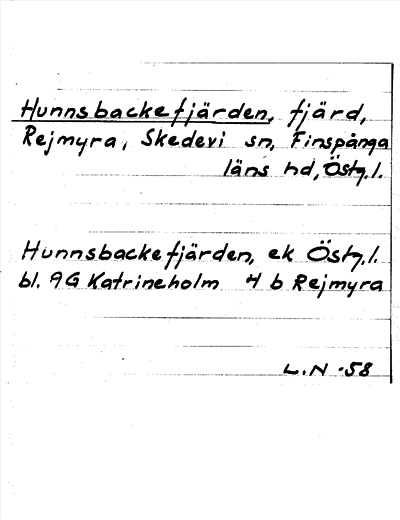 Hunnsbackefjärden, fjärd,
Rejmyra, Skedevi sn, Finspånga
läns hd, Östg. l.
Hunnsbackefjärden, ek Östg. l.
bl. 9G Katrineholm 4 b Rejmyra
L.N -58